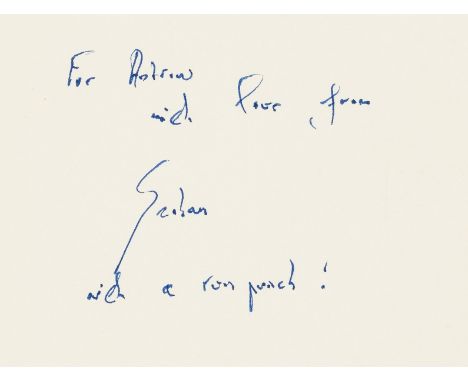 For
with love from
Graham
with a rum punch!